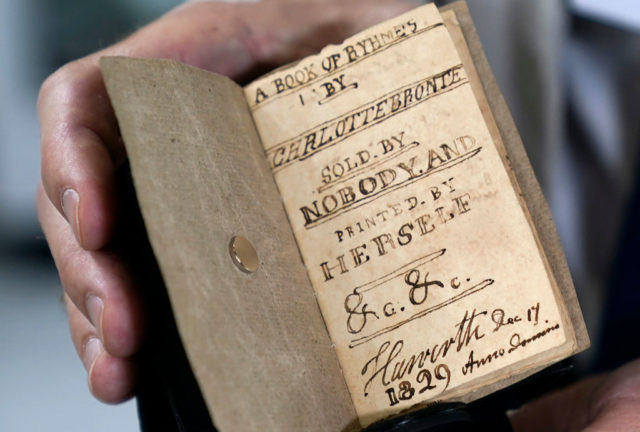 A BOOK OF RYHMES
BY
CHARLOTTE BRONTE
SOLD. BY
NOBODY. AND
PRINTED. BY
HERSELF
&c. &c.
Haworth Dec 17.
1829 Anno Domino